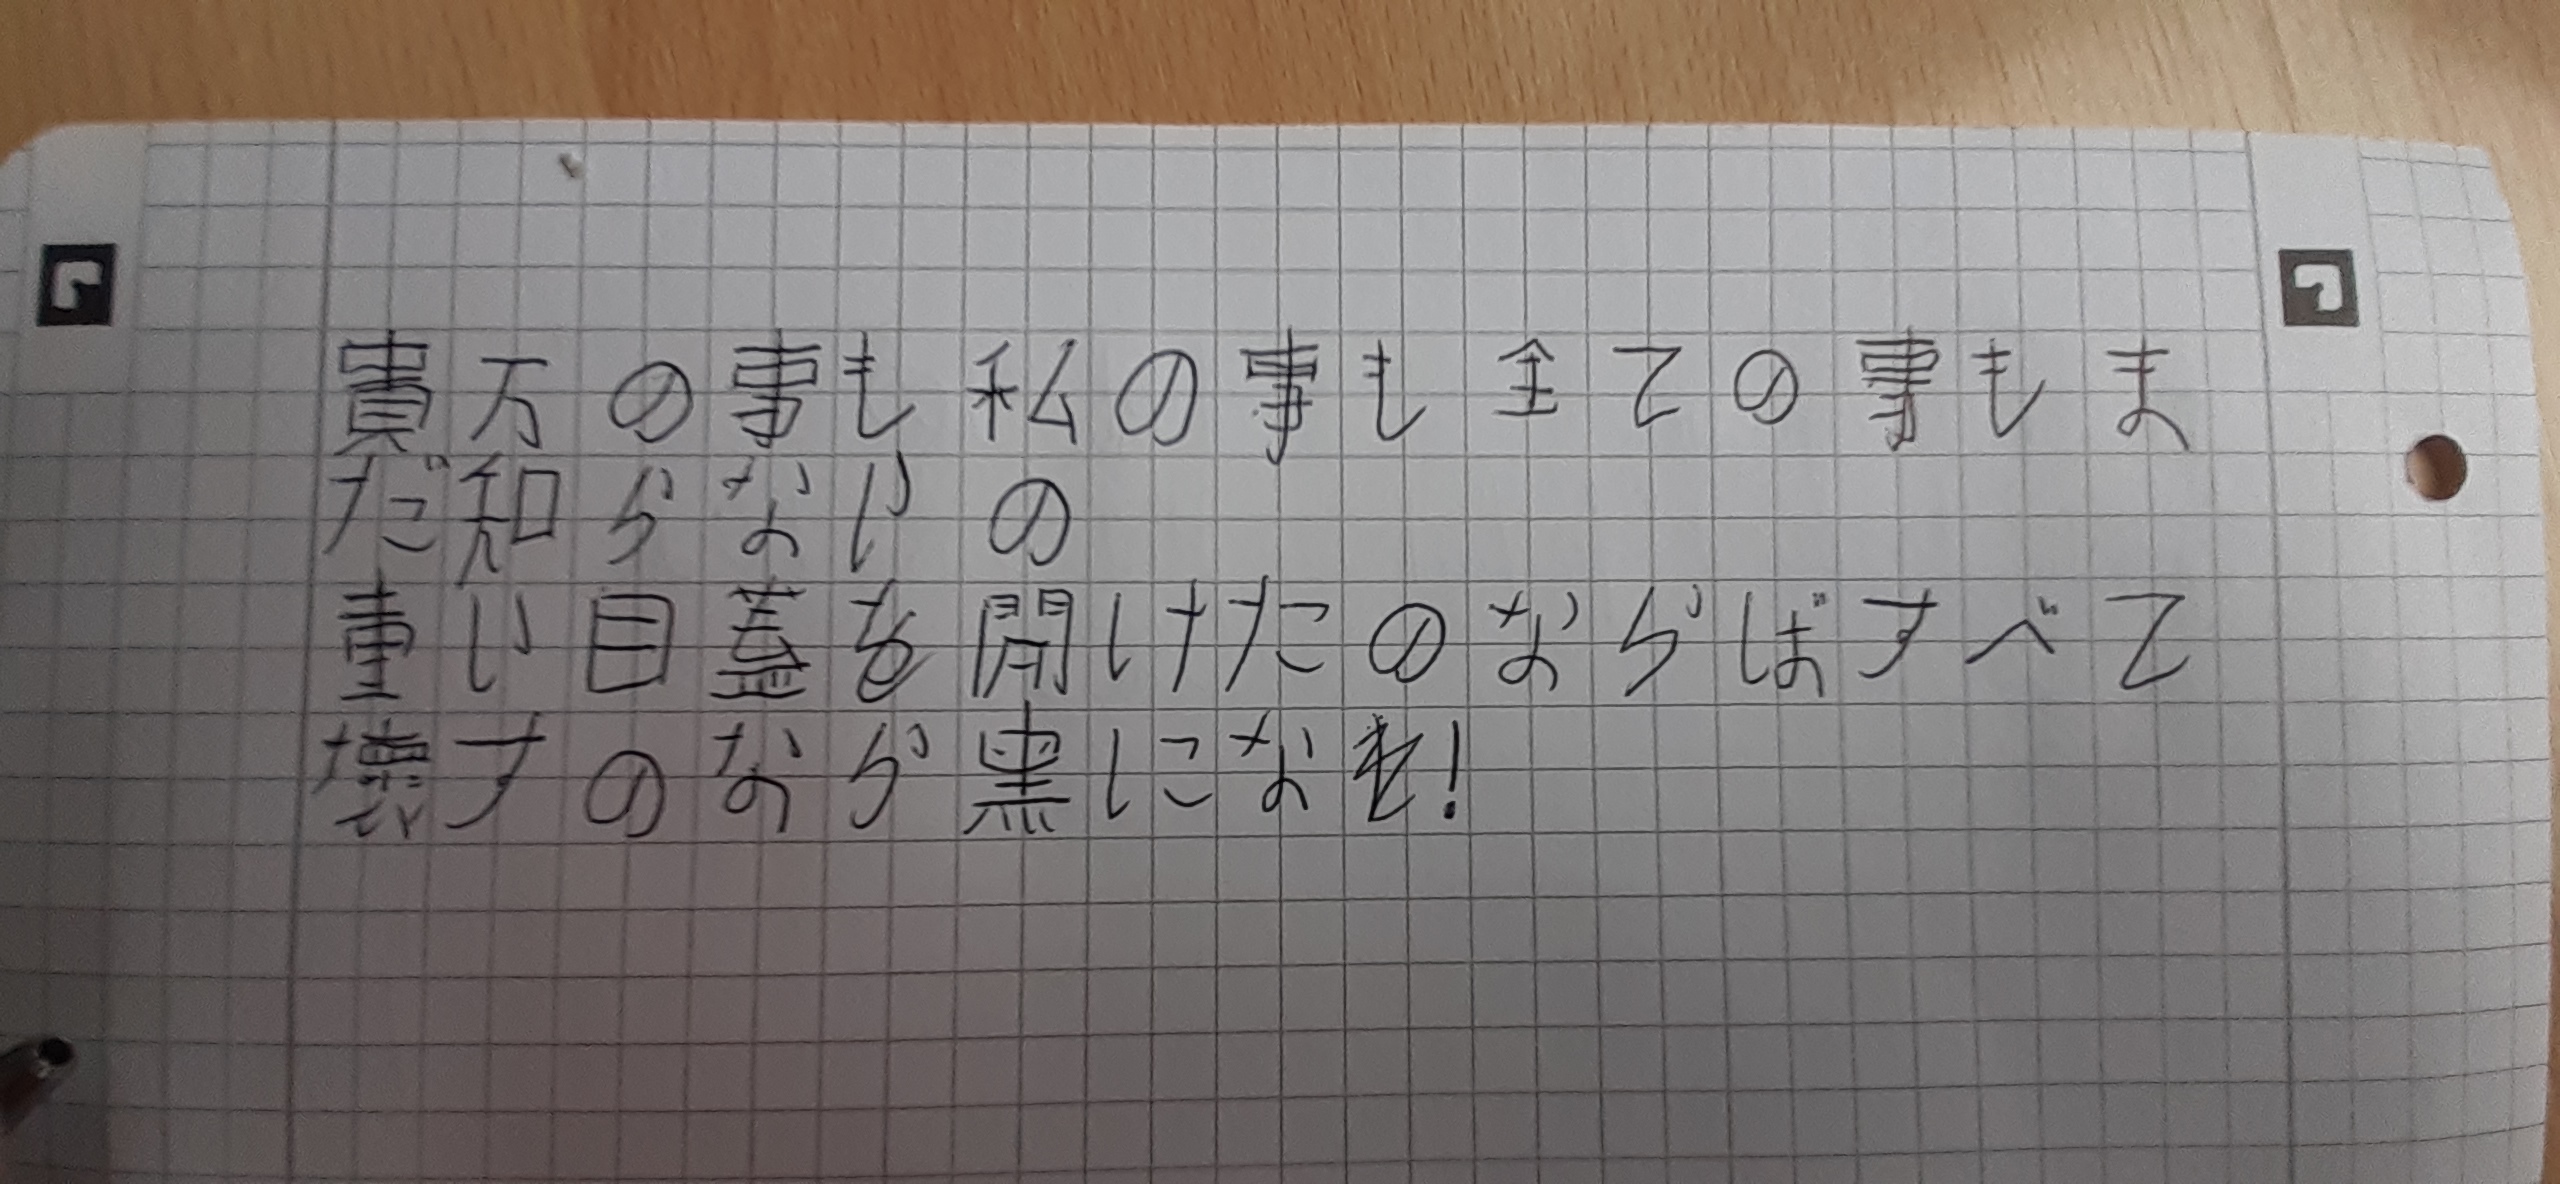 貴方の事も私の事も全ての事もま
だ知らないの
重い目蓋を開けたのならばすべて
壊すのなら黒になれ!